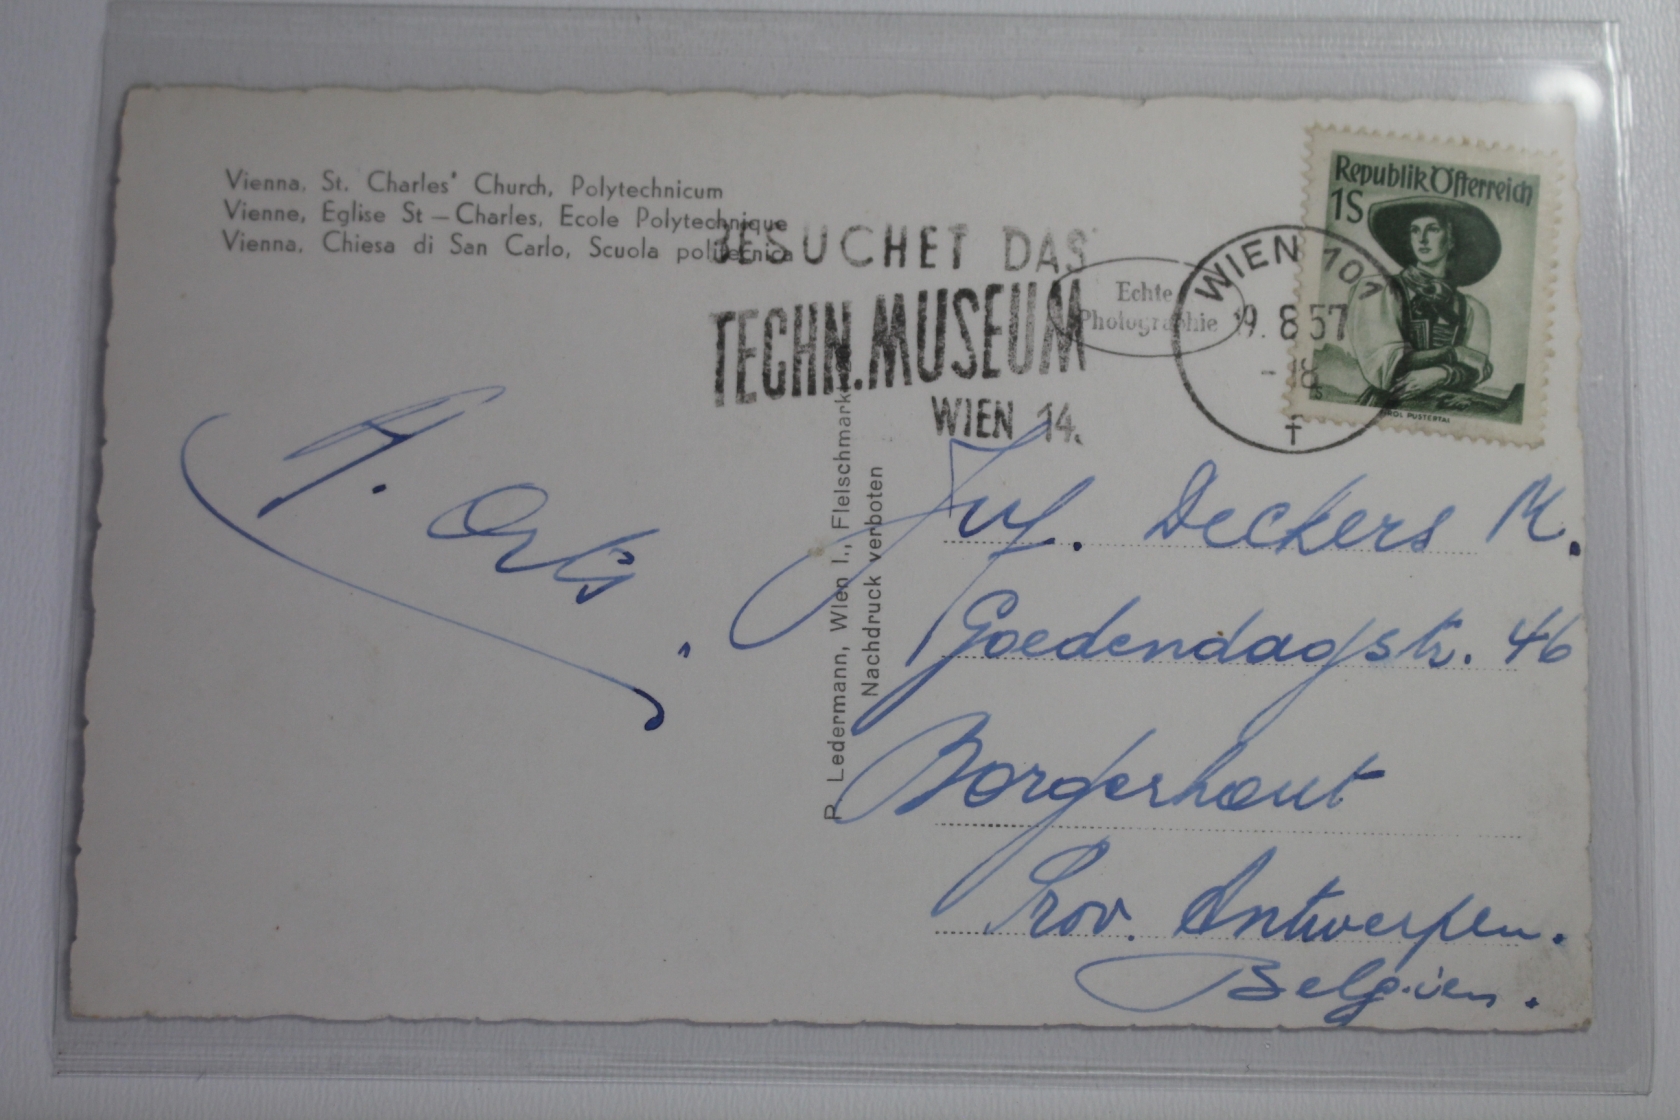 Vienna, St. Charles' Church, Polytechnicum
Vienne, Eglise St – Charles, Ecole Polytechnique
Vienna, Chiesa di San Carlo, Scuola politecnica
BESUCHET DAS
TECHN. MUSEUM
WIEN 14.
Echte
Photographie
WIEN 101
9. 8 57
- 18
Republik Österreich
1S
TIROL PUSTERTAL
P. Ledermann, Wien I., Fleischmark
Nachdruck verboten
Juf. Deckers M.
Goedendagstr. 46
Borgerhout
Prov. Antwerpen.
Belgien.